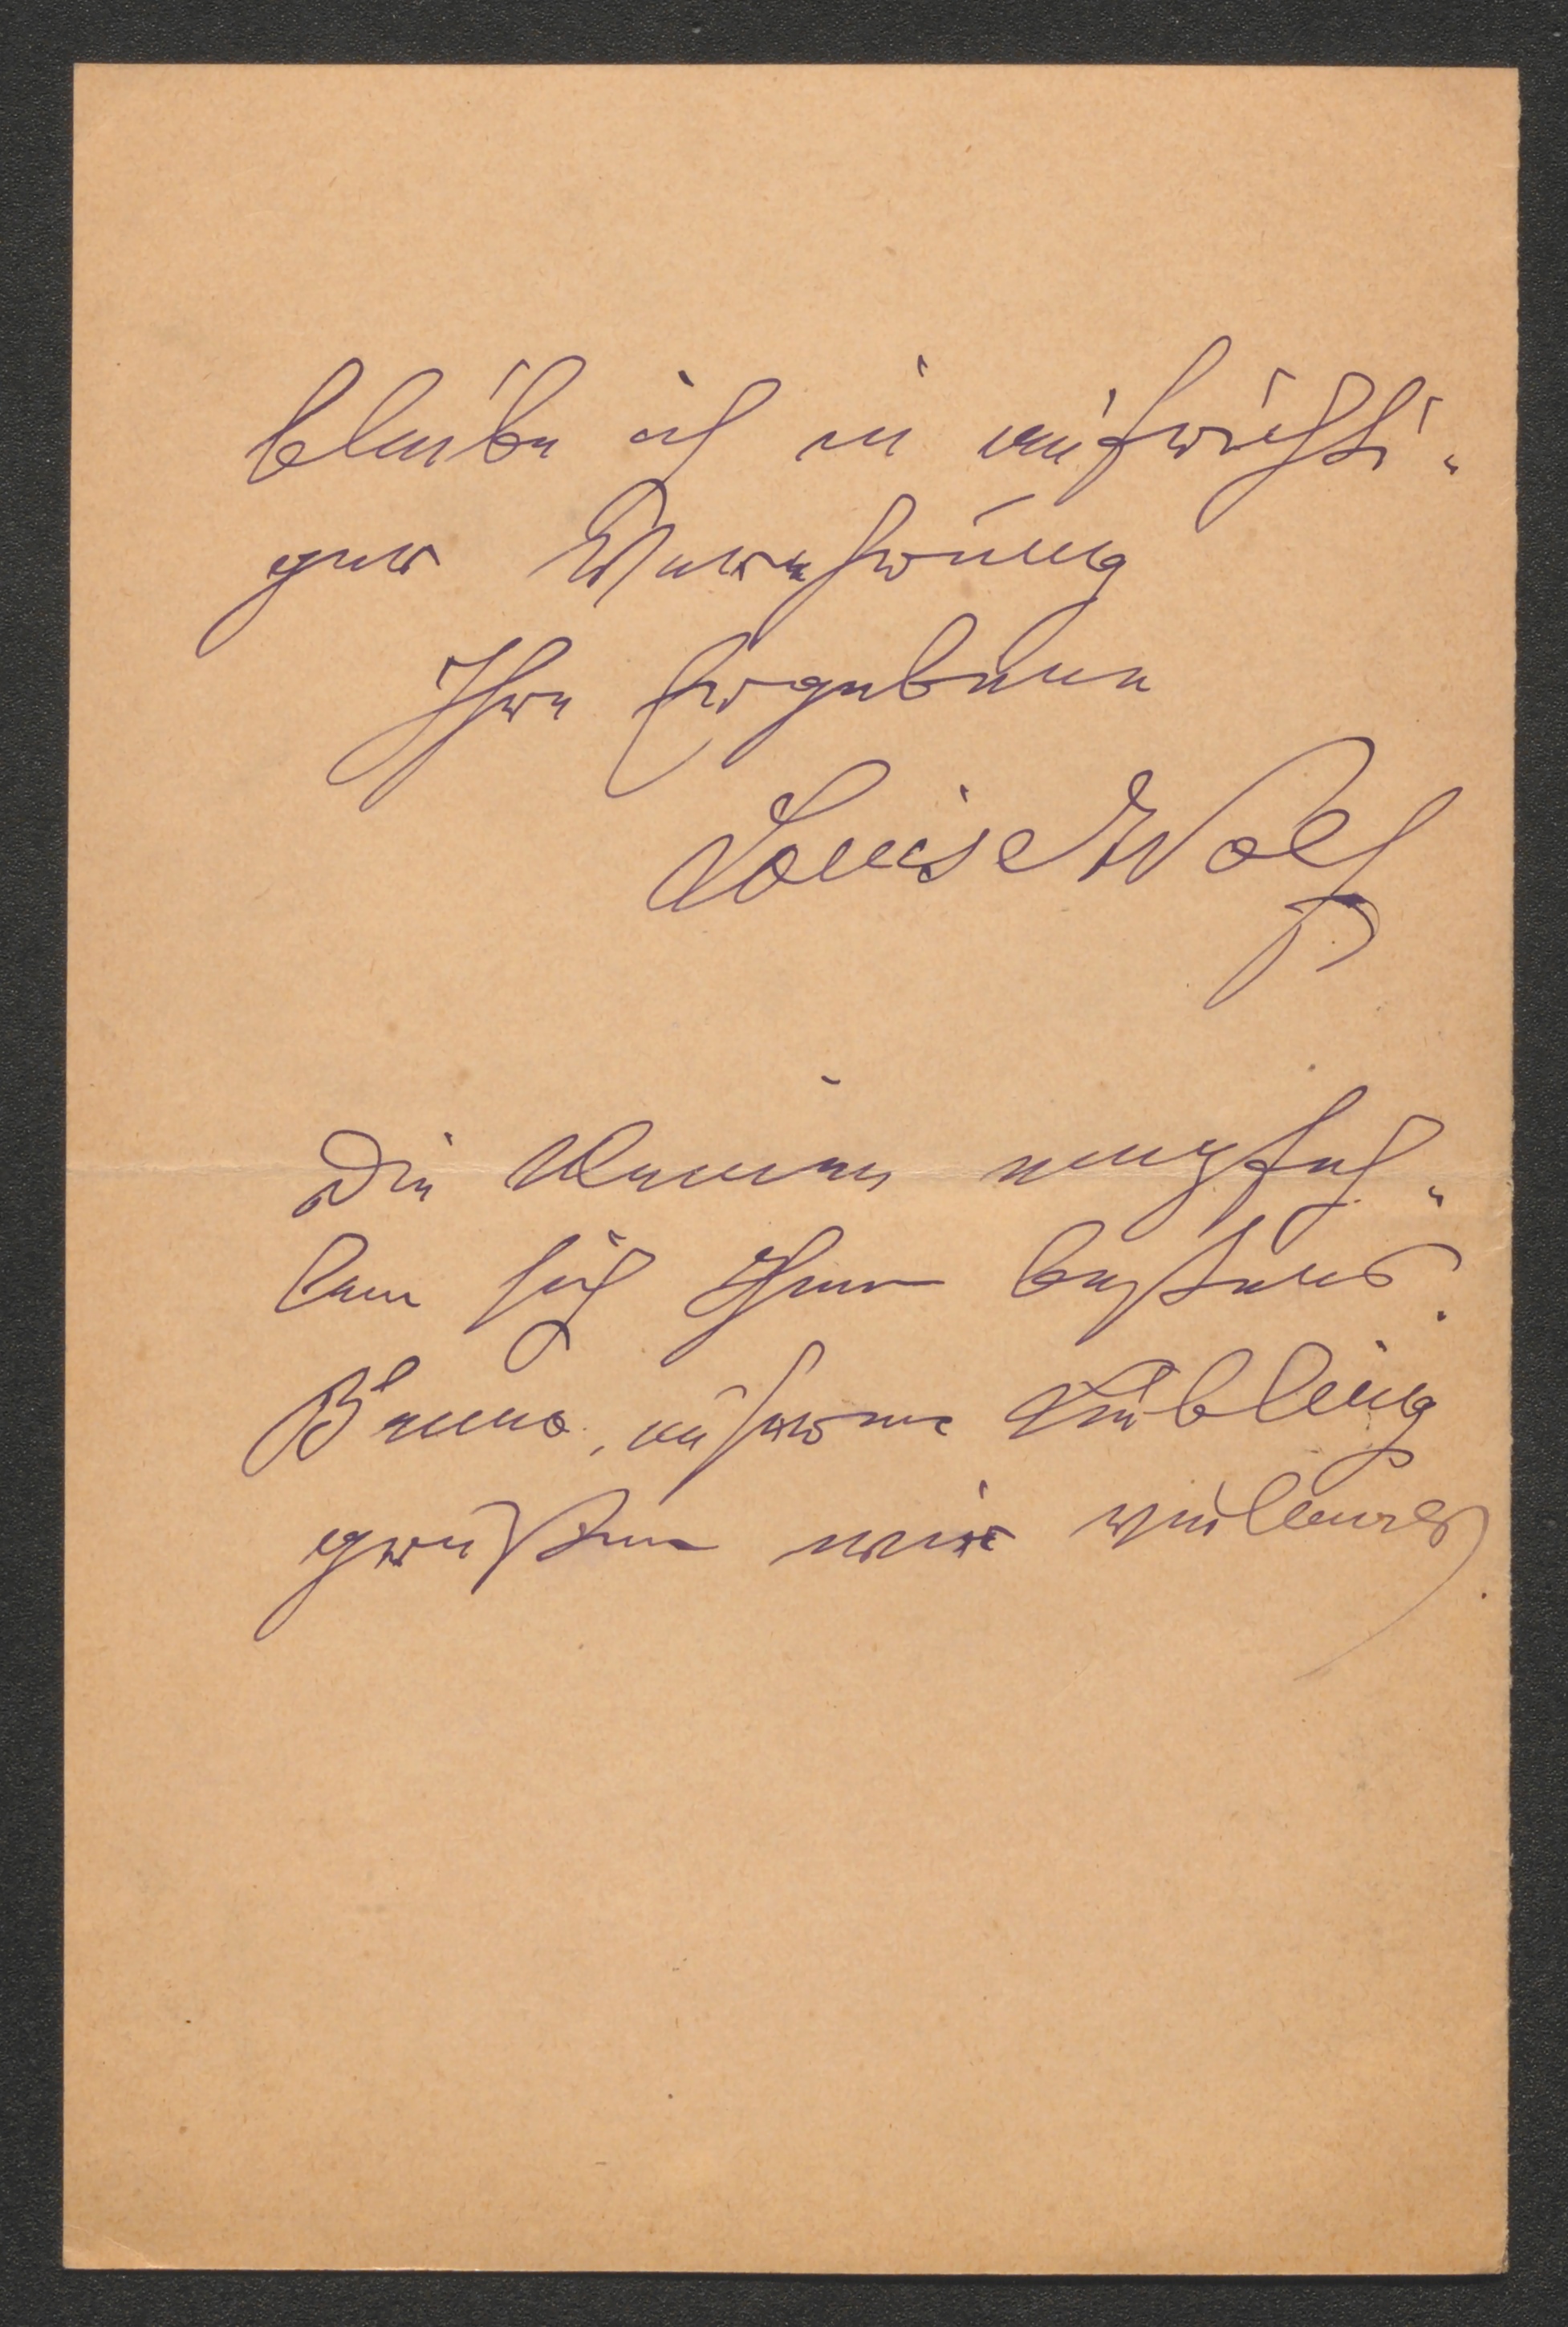 bleibe ich in aufrichti-
ger Verehrung
Ihre Ergebene
Louise Wolff
Die Kleinen empfeh-
len sich Ihnen bestens.
Benno, unseren Liebling
grüßen wir vielmals.